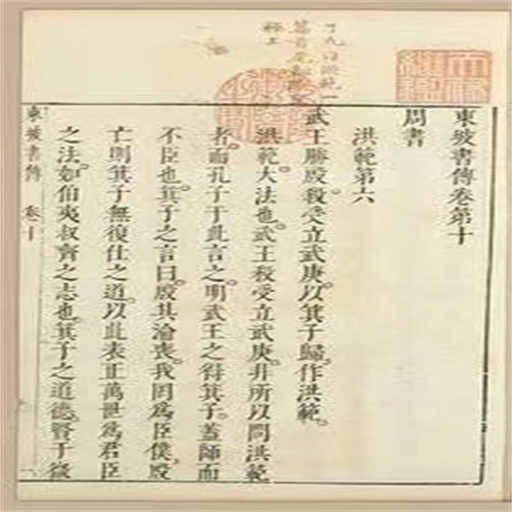 東坡書傳卷第十
周書
洪範第六
武王勝殷殺受立武庚以箕子歸作洪範
洪範大法也武王殺受立武庚非所以問洪範
者而孔子于此言之明武王之得箕子蓋師而
不臣也箕子之言曰殷其淪喪我罔為臣僕殷
亡則箕子無復仕之道以此表正萬世為君臣
之法如伯夷叔齊之志也箕子之道德賢于微
東坡書傳 卷十 一